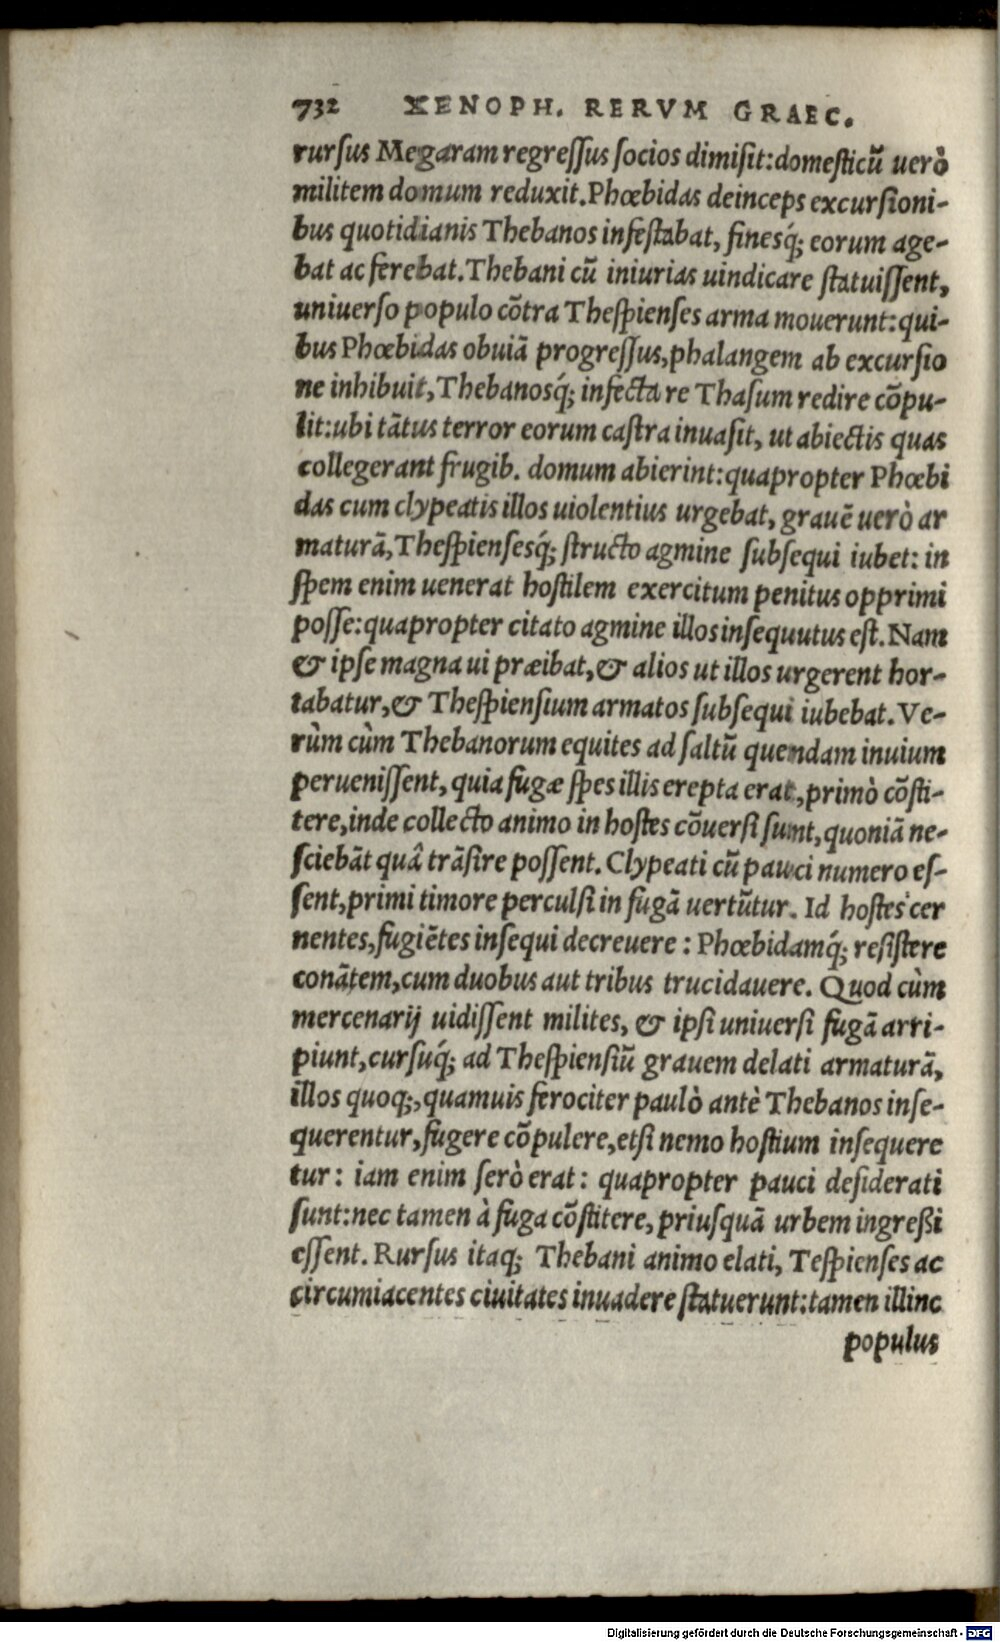 732 XENOPH. RERVM GRAEC.
rursus Megaram regressus socios dimisit: domesticū uerò
militem domum reduxit. Phœbidas deinceps excursioni-
bus quotidianis Thebanos infestabat, finesq́; eorum age-
bat ac ferebat. Thebani cū iniurias uindicare statuissent,
uniuerso populo cōtra Thespienses arma mouerunt: qui-
bus Phœbidas obuiā progressus, phalangem ab excursio
ne inhibuit, Thebanosq́; infecta re Thasum redire cōpu-
lit: ubi tātus terror eorum castra inuasit, ut abiectis quas
collegerant frugib. domum abierint: quapropter Phœbi
das cum clypeatis illos uiolentius urgebat, grauē uerò ar
maturā, Thespiensesq́; structo agmine subsequi iubet: in
spem enim uenerat hostilem exercitum penitus opprimi
posse: quapropter citato agmine illos insequutus est. Nam
& ipse magna ui præibat, & alios ut illos urgerent hor-
tabatur, & Thespiensium armatos subsequi iubebat. Ve-
rùm cùm Thebanorum equites ad saltū quendam inuium
peruenissent, quia fugæ spes illis erepta erat, primò cōsti-
tere, inde collecto animo in hostes cōuersi sunt, quoniā ne-
sciebāt quâ trāsire possent. Clypeati cū pauci numero es-
sent, primi timore perculsi in fugā uertūtur. Id hostes cer
nentes, fugiētes insequi decreuere: Phœbidamq́; resistere
conātem, cum duobus aut tribus trucidauere. Quod cùm
mercenarij uidissent milites, & ipsi uniuersi fugā arri-
piunt, cursuq́; ad Thespiensiū grauem delati armaturā,
illos quoq;, quamuis ferociter paulò antè Thebanos inse-
querentur, fugere cōpulere, etsi nemo hostium insequere
tur: iam enim serò erat: quapropter pauci desiderati
sunt: nec tamen à fuga cōstitere, priusquā urbem ingreßi
essent. Rursus itaq; Thebani animo elati, Tespienses ac
circumiacentes ciuitates inuadere statuerunt: tamen illinc
populus
Digitalisierung gefördert durch die Deutsche Forschungsgemeinschaft - DFG